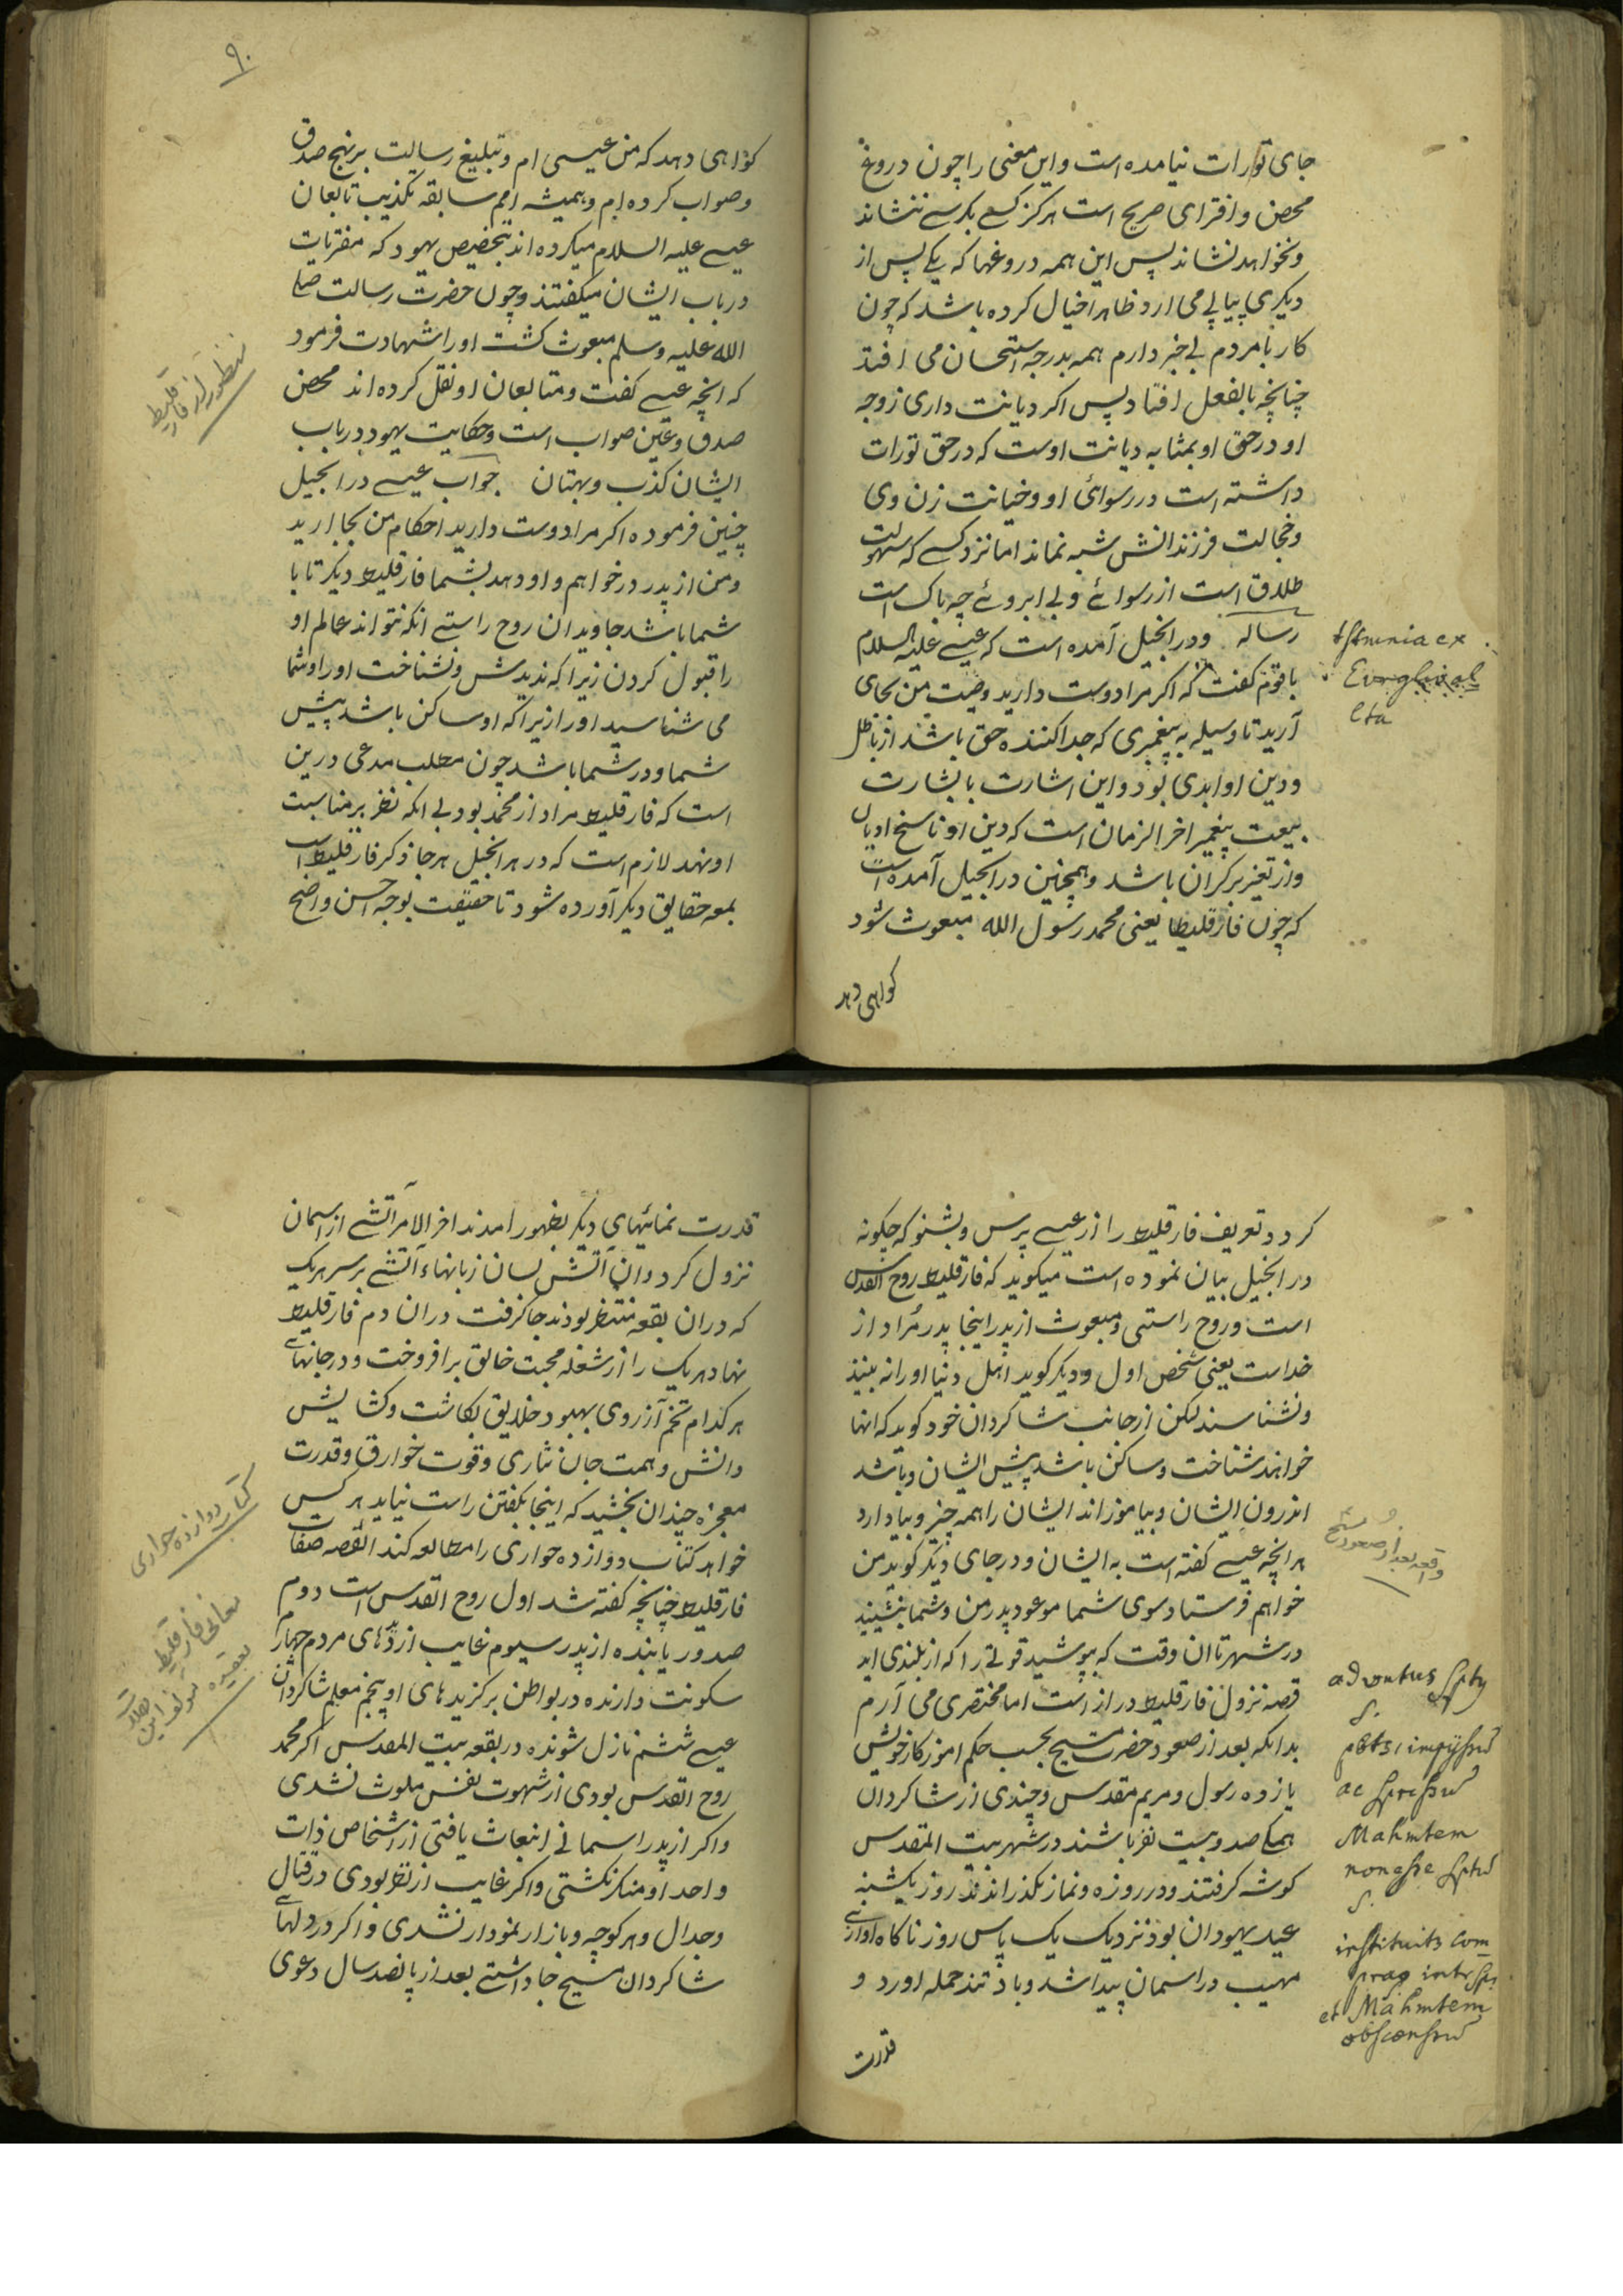 جای تورات نیامده است و این معنی را چون دروغ
محض و افترای صریح است هرکز کسے بکرسے ننشاند
و نخواهد نشاند پس این همه دروغها که یکے پس از
دیکری پیاپے می ارد ظاهرا خیال کرده باشد که چون
کار بامردم بے خبر دارم همه بدرجه استحسان می افتد
چنانچه بالفعل افتاد پس اکر دیانت داری زوجه
او در حق او بمثابه دیانت اوست که در حق تورات
داشته است در رسوائی او و خیانت زن وی
و خجالت فرزندانش شبه نماند اما نزد کسے که سهولت
طلاق است از رسوائے و بے ابروئے چه باک است
رساله و در انجیل آمده است که عیسے علیه السلام
باقوم کفت که اکر مرا دوست دارید وصیت من بجای
آرید تا وسیله به پیغمبری که جدا کننده حق باشد از باطل
و دین او ابدی بود و این اشارت با بشارت
بیعت پیغمبر اخر الزمان است که دین او ناسخ ادیان
و از تغیر برکران باشد و همچنین در انجیل آمده است
که چون فارقلیطا یعنی محمد رسول الله مبعوث شود
کواهی دهد
tstmnia ex
Evngliō al
lta
۹۰
کواهی دهد که من عیسی ام و تبلیغ رسالت برنهج صدق
و صواب کرده ام و همیشه امم سابقه تکذیب تابعان
عیسے علیه السلام میکرده اند بتخصیص یهود که مفتریات
در باب ایشان میکفتند و چون حضرت رسالت صلے
الله علیه و سلم مبعوث کشت او را شهادت فرمود
که انچه عیسے کفت و متابعان او نقل کرده اند محض
صدق و عین صواب است و حکایت یهود در باب
ایشان کذب و بهتان جواب عیسے در انجیل
چنین فرموده اکر مرا دوست دارید احکام من بجا ارید
و من از پدر درخواهم و او دهد بشما فارقلیط دیکر تا با
شما باشد جاویدان روح راستے انکه نتواند عالم او
را قبول کردن زیرا که ندیدش و نشناخت او را و شما
می شناسید او را زیرا که او ساکن باشد پیش
شما و در شما باشد چون مطلب مدعی درین
است که فارقلیط مراد از محمد بود بے انکه نظر بر مناسبت
او نهد لازم است که در هر انجیل هرجا ذکر فارقلیط است
بمعه حقایق دیکر آورده شود تا حقیقت بوجه احسن واضح
منظور از فارقلیط
کردد و تعریف فارقلیط را از عیسے پرس و بشنو که چکونه
در انجیل بیان نموده است میکوید که فارقلیط روح القدس
است و روح راستی و مبعوث از پدر اینجا پدر مراد از
خداست یعنی شخص اول و دیکر کوید اهل دنیا او را نه بینند
و نشناسند لکن از جانب شاکردان خود کوید که انها
خواهند شناخت و ساکن باشد پیش ایشان و باشد
اندرون ایشان و بیاموزاند ایشان را همه چیز و بیاد ارد
هر انچه عیسے کفته است به ایشان و در جای دیکر کوید من
خواهم فرستاد سوی شما موعود پدر من و شما بنشینید
در شهر تا ان وقت که بپوشید قوتے را که از بلندی اید
قصه نزول فارقلیط دراز است اما مختصری می آرم
بدانکه بعد از صعود حضرت مسیح بحسب حکم اموزکار خویش
یازده رسول و مریم مقدس و چندی از شاکردان
همکے صد و بیست نفر باشند در شهر بیت المقدس
کوشه کرفتند و در روزه و نماز بکذراندند روز یکشنبه
عید یهودان بود نزدیک یک پاس روز ناکاه اوازے
مهیب در اسمان پیدا شد و باد تند حمله اورد و
قدرت
واقعه بعد از صعود مسیح
adventus
S.
Mahmtem
S.
instituits com
et Mahmtem
قدرت نمائیهای دیکر بظهور امدند اخر الامر آتشے از اسمان
نزول کرد و ان آتش لسان زبانهاء آتشے بر سر هریک
که دران بقعه منتظر بودند جا کرفت دران دم فارقلیط
نهاد هریک را از شعله محبت خالق برافروخت و در جانهاے
هرکدام تخم آرزوی بهبود خلایق بکاشت و کشایش
دانش و همت جان نثاری و قوت خوارق و قدرت
معجزه چندان بخشید که اینجا بکفتن راست نیاید هرکس
خواهد کتاب دوازده حواری را مطالعه کند القصه صفات
فارقلیط چنانچه کفته شد اول روح القدس است دوم
صدور یابنده از پدر سیوم غایب از دیدهای مردم چهارم
سکونت دارنده در بواطن برکزیدهای او پنجم معلم شاکردان
عیسے ششم نازل شونده در بقعه بیت المقدس اکر محمد
روح القدس بودی از شهوت نفس ملوث نشدی
و اکر از پدر اسمانے انبعاث یافتی از اشخاص ذات
واحد او منکر نکشتی و اکر غایب از نظر بودی در قتال
و جدال و هر کوچه و بازار نمودار نشدی و اکر در دلهاے
شاکردان مسیح جا داشتے بعد از پانصد سال دعوی
کتاب دوازده حواری
معانی فارقلیط